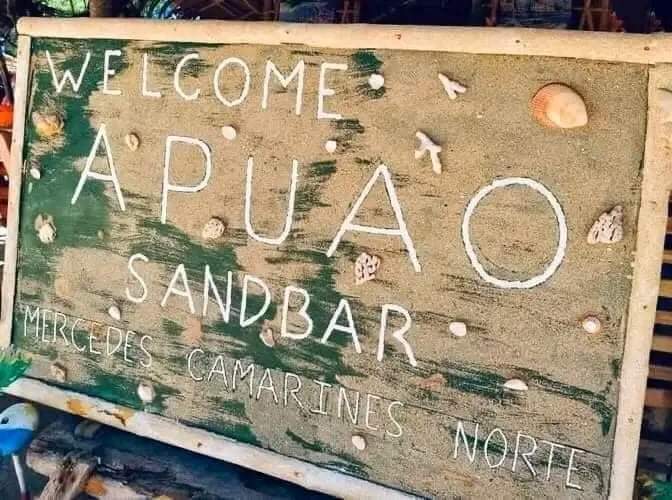 WELCOME
APUAO
SANDBAR
MERCEDES CAMARINES NORTE